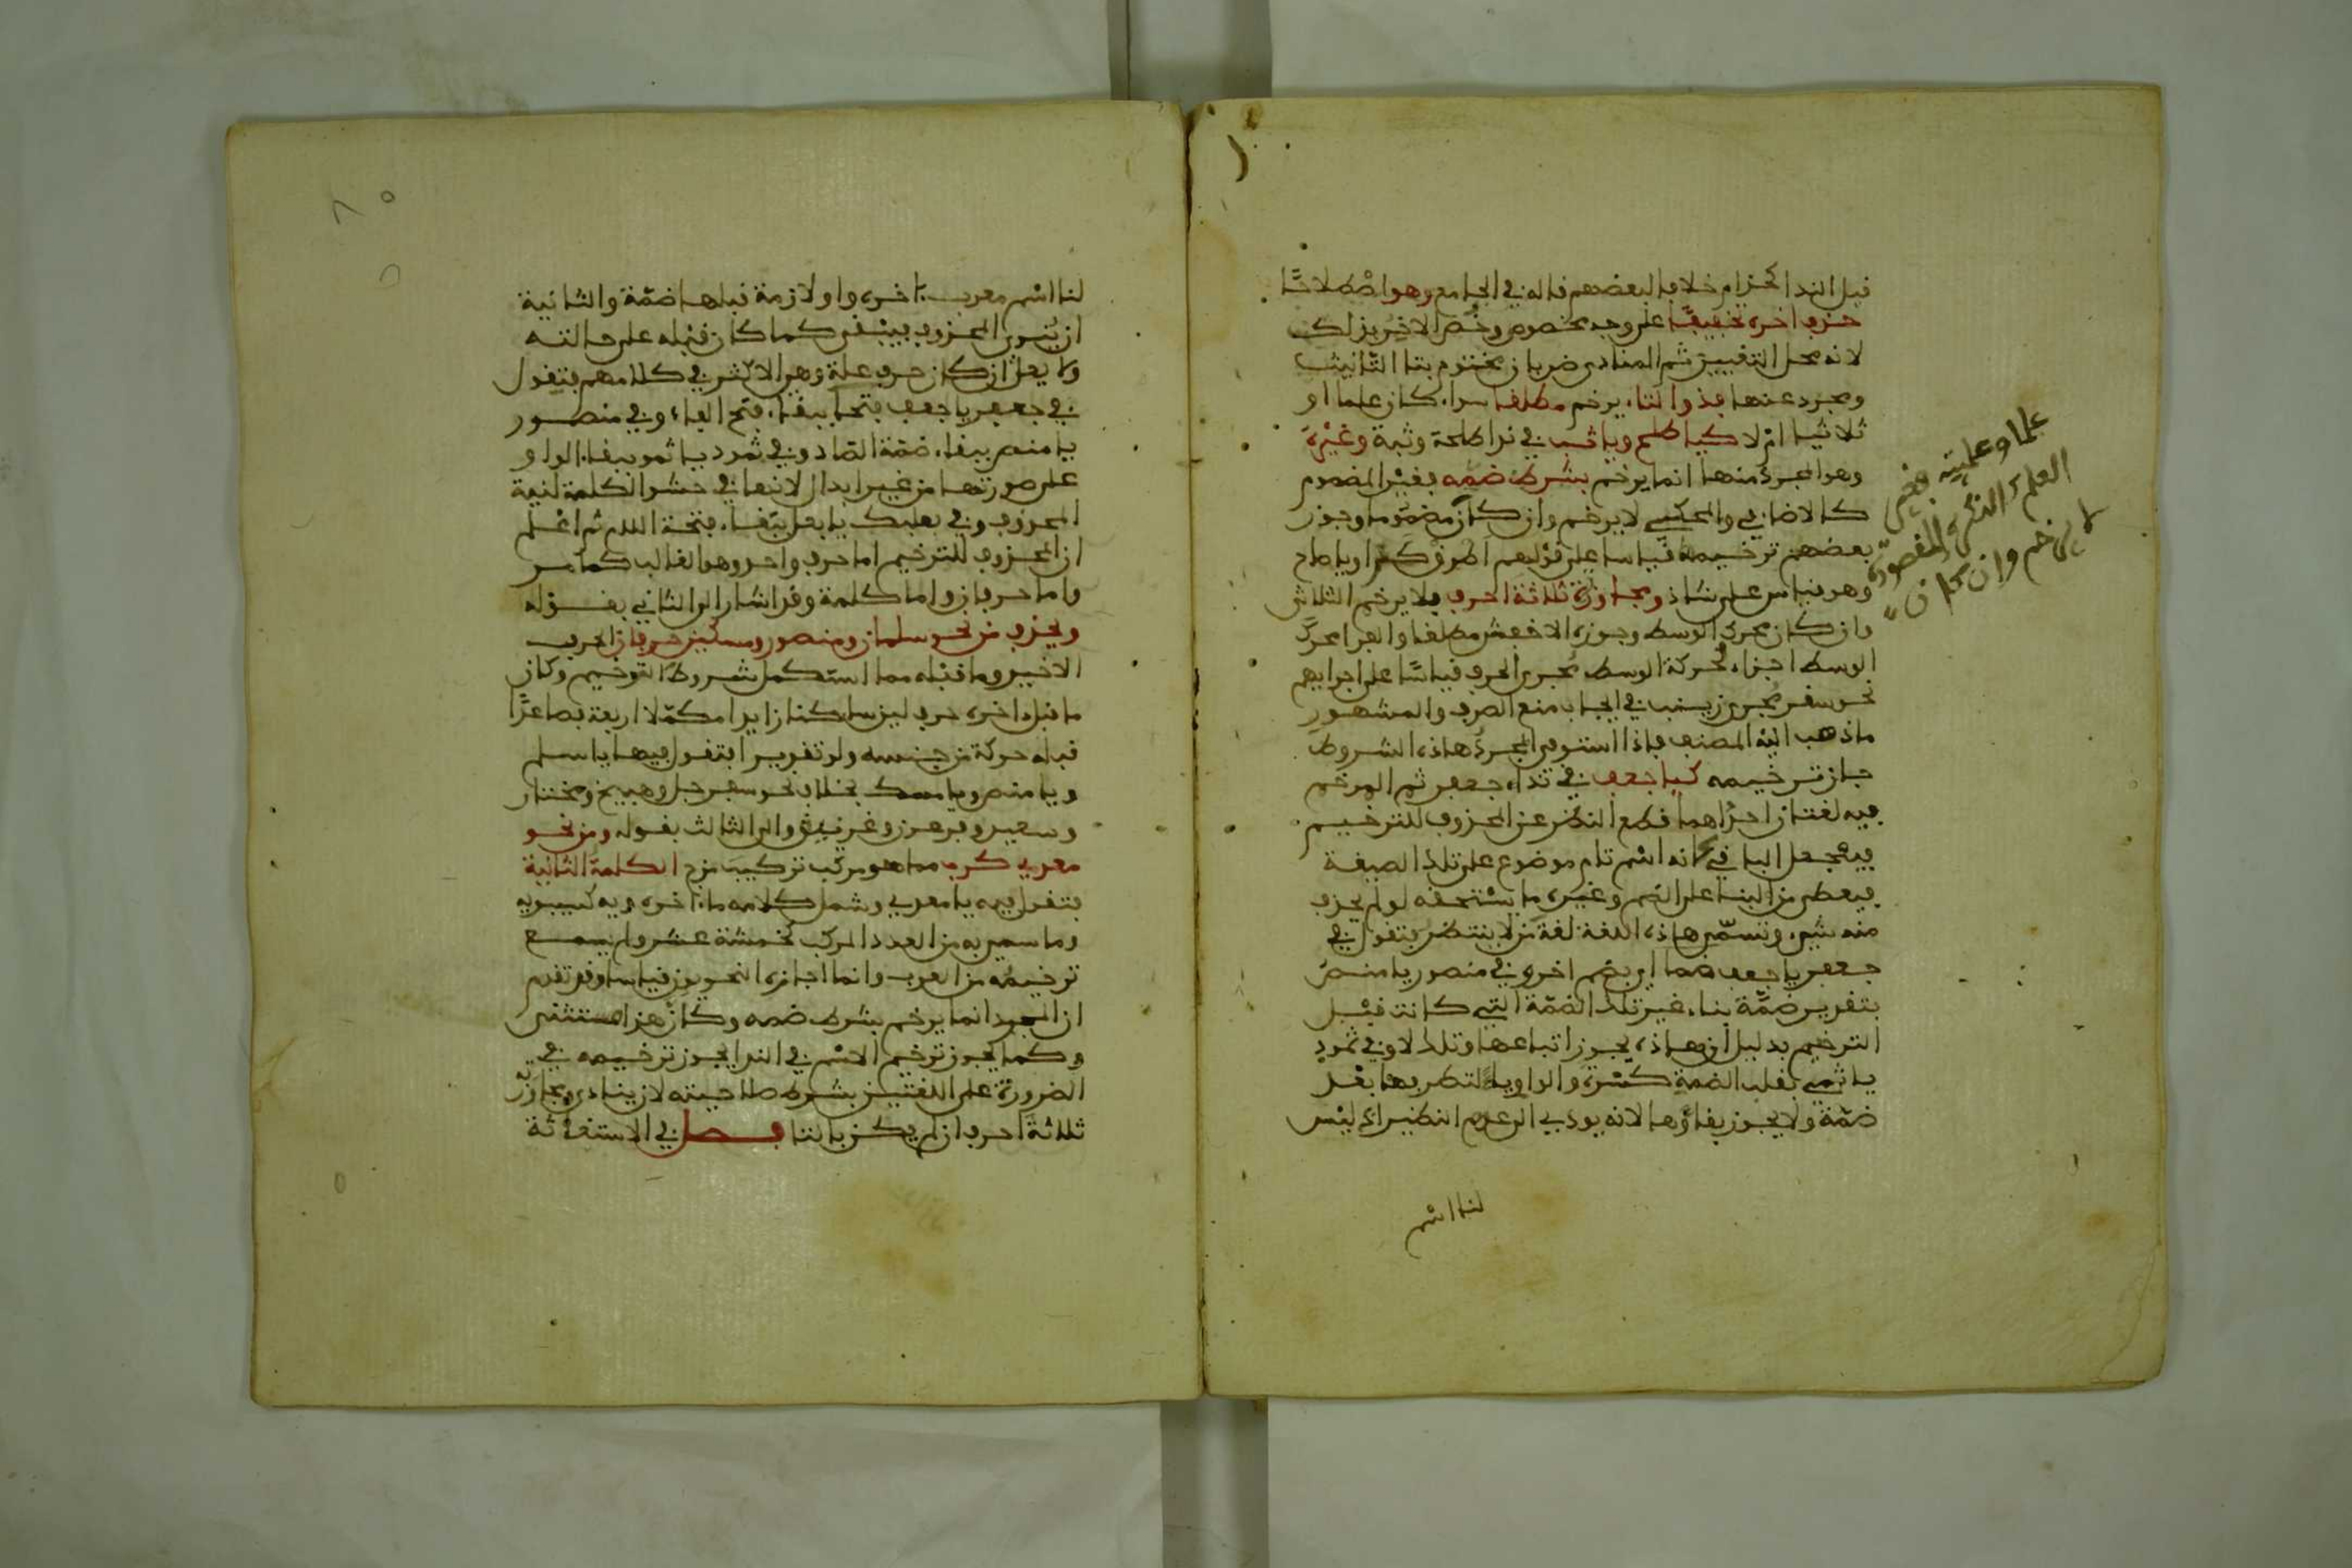 قبل الندا كحزام خلافا لبعضهم قاله في الجامع وهو اصْطلاحًا
حذف اخره تخفيفًا على وجه مخصوص وخُصّ الاخِر بذلك
لانه محل التغيير ثم المنادى ضربان مختوم بتا التّانيث
ومجرد عنها فذو التاء يرخم مطلقا سواء كان علما او
ثلاثيا امْ لا كيا طلح ويا ثب في ندا طلحة وثبة وغيْره
وهو المجردُ منها انما يرخم بشرط ضمّه فغيْر المضموم
كالاضافي والمحكي لا يرخم وان كان مضمُوما وجوز
بعضهم ترخيمه قياسا على قوْلهم اطرق كرا ويا صاح
وهو قياس على شاذ ومجاوزة ثلاثة احرف فلا يرخم الثلاثي
وان كان محرك الوسط وجوزه الاخفش مطلقا والفرا محركَ
الوسط اجراء لحركة الوسط مُجرى الحرف قياسًا على اجرايهم
نحو سقر مجرى زينب في ايجاب منع الصرف والمشهور
ما ذهب اليْه المصنف فاذا استوفى المجردُ هاذه الشروط
جاز ترخيمه كيا جعف في نداء جعفر ثم المرخم
فيه لغتان احدُاهما قطع النظر عن المحذوف للترخيم
فيُجعل الباقي كانه اسْم تام موضوع على تلك الصيغة
فيعطى من البنا على الضم وغيره ما يسْتحقه لو لم يحذف
منه شيء وتسمّى هاذه اللغة لغة من لا ينتظر فتقول في
جعفر يا جعف ضما اي بضم اخره وفي منصور يا منصُ
بتقدير ضمّة بناء غير تلك الضمّة التي كانت قبْل
الترخيم بدليل ان هاذه يجوز اتباعها وتلك لا وفي ثمود
يا ثمي بقلب الضمة كسْرة والواو ياءً لتطرفها بعْد
ضمّة ولا يجوز بقاؤها لانه يودي الى عدم النظير اذ ليْس
لنا اسْم
علما وعلميّته بغير
العلم كالنكرة المقصودة
لا يرخم وان كان
لنا اسْم معرب باخره واو لازمة قبلها ضمّة والثانية
ان يُنوى المحذوف فيبْقى كما كان قبْله على حالته
ولا يعل ان كان حرف علة وهو الاكثر في كلامهم فتقول
في جعفر يا جعف فتحا ببقاء فتح الفاء وفي منصور
يا منص ببقاء ضمّة الصّاد وفي ثمود يا ثمو ببقاء الواو
على صورتها من غير ابدال لانها في حشْو الكلمة لنية
المحذوف وفي بعلبك يا بعل ببقاء فتحة اللام ثم اعْلم
ان المحذوف للترخيم اما حرف واحد وهو الغالب كما مر
واما حرفان واما كلمة وقد اشار الى الثاني بقوْله
ويحذف من نحو سلمان ومنصور ومسكين حرفان الحرف
الاخير وما قبْله مما استكمل شروط الترخيم وكان
ما قبل اخره حرف لين ساكنا زايدا مكمّلا اربعة فصاعدًا
قبله حركة من جنسه ولو تقديرا فتقول فيها يا سلم
ويا منص ويا مسك بخلاف نحو سفرجل وهبيخ ومختار
وسعيد وفرعون وغرنيق والى الثالث بقوله ومن نحو
معدي كرب مما هو مركّب تركيبَ مزج الكلمة الثانية
فتقول فيه يا معدي وشمل كلامه ما اخره ويه كسيبويه
وما سمي به من العدد المركب كخمسْة عشر ولم يسمع
ترخيمُه من العرب وانما اجازه النحويون قياسا وقد تقدم
ان المجرد انما يرخم بشرط ضمه وكان هذا مستثنى
وكما يجوز ترخيم الاسْم في الندا يجوز ترخيمه في
الضرورة على اللغتيْن بشرط صلاحيته لان ينادى ومجاوزته
ثلاثة احرف ان لم يكن بالتا فصل في الاستغاثة